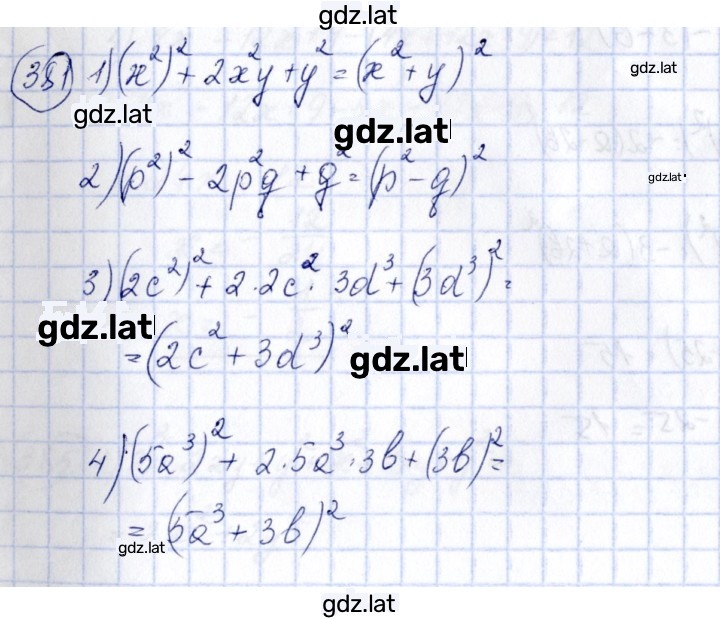 gdz.lat
381 1) (x²)² + 2x²y + y² = (x² + y)²
gdz.lat
gdz.lat
gdz.lat
2) (p²)² - 2p²q + q² = (p² - q)²
gdz.lat
3) (2c²)² + 2·2c²·3d³ + (3d³)² =
gdz.lat
= (2c² + 3d³)²
gdz.lat
4) (5a³)² + 2·5a³·3b + (3b)² =
= (5a³ + 3b)²
gdz.lat
gdz.lat